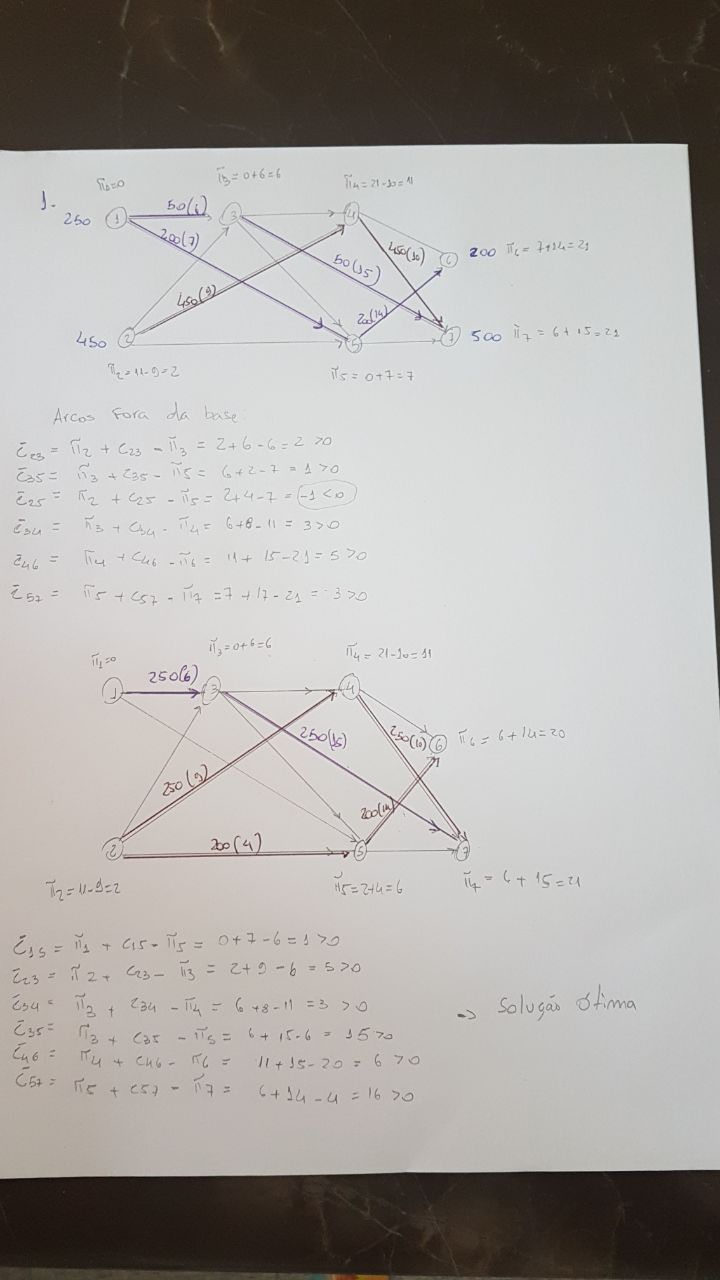 π̄₁=0
π̄₃ = 0+6=6
π̄₄ = 21-10=11
1.
250 1 50(6) 3 4
200(7)
450(10) 6 200 π̄₆ = 7+14=21
50(15)
450(9) 200(14)
450 2 5 7 500 π̄₇ = 6+15=21
π̄₂=11-9=2 π̄₅ = 0+7=7
Arcos fora da base:
c̄₂₃ = π̄₂ + c₂₃ - π̄₃ = 2+6-6=2 >0
c̄₃₅ = π̄₃ + c₃₅ - π̄₅ = 6+2-7 = 1 >0
c̄₂₅ = π̄₂ + c₂₅ - π̄₅ = 2+4-7 = -1 <0
c̄₃₄ = π̄₃ + c₃₄ - π̄₄ = 6+8-11 = 3>0
c̄₄₆ = π̄₄ + c₄₆ - π̄₆ = 11+15-21=5 >0
c̄₅₇ = π̄₅ + c₅₇ - π̄₇ = 7+17-21 = 3 >0
π̄₁=0 π̄₃=0+6=6 π̄₄ = 21-10=11
1 250(6) 3 4
250(15) 250(10) 6 π̄₆ = 6+14=20
250(9) 200(14)
2 200(4) 5 7
π̄₂=11-9=2 π̄₅=2+4=6 π̄₇ = 6+15=21
c̄₁₅ = π̄₁ + c₁₅ - π̄₅ = 0+7-6=1 >0
c̄₂₃ = π̄₂ + c₂₃ - π̄₃ = 2+9-6 = 5 >0
c̄₃₄ = π̄₃ + c₃₄ - π̄₄ = 6+8-11 =3 >0 => Solução Ótima
c̄₃₅ = π̄₃ + c₃₅ - π̄₅ = 6+15-6 = 15 >0
c̄₄₆ = π̄₄ + c₄₆ - π̄₆ = 11+15-20 = 6 >0
c̄₅₇ = π̄₅ + c₅₇ - π̄₇ = 6+14-4 = 16 >0